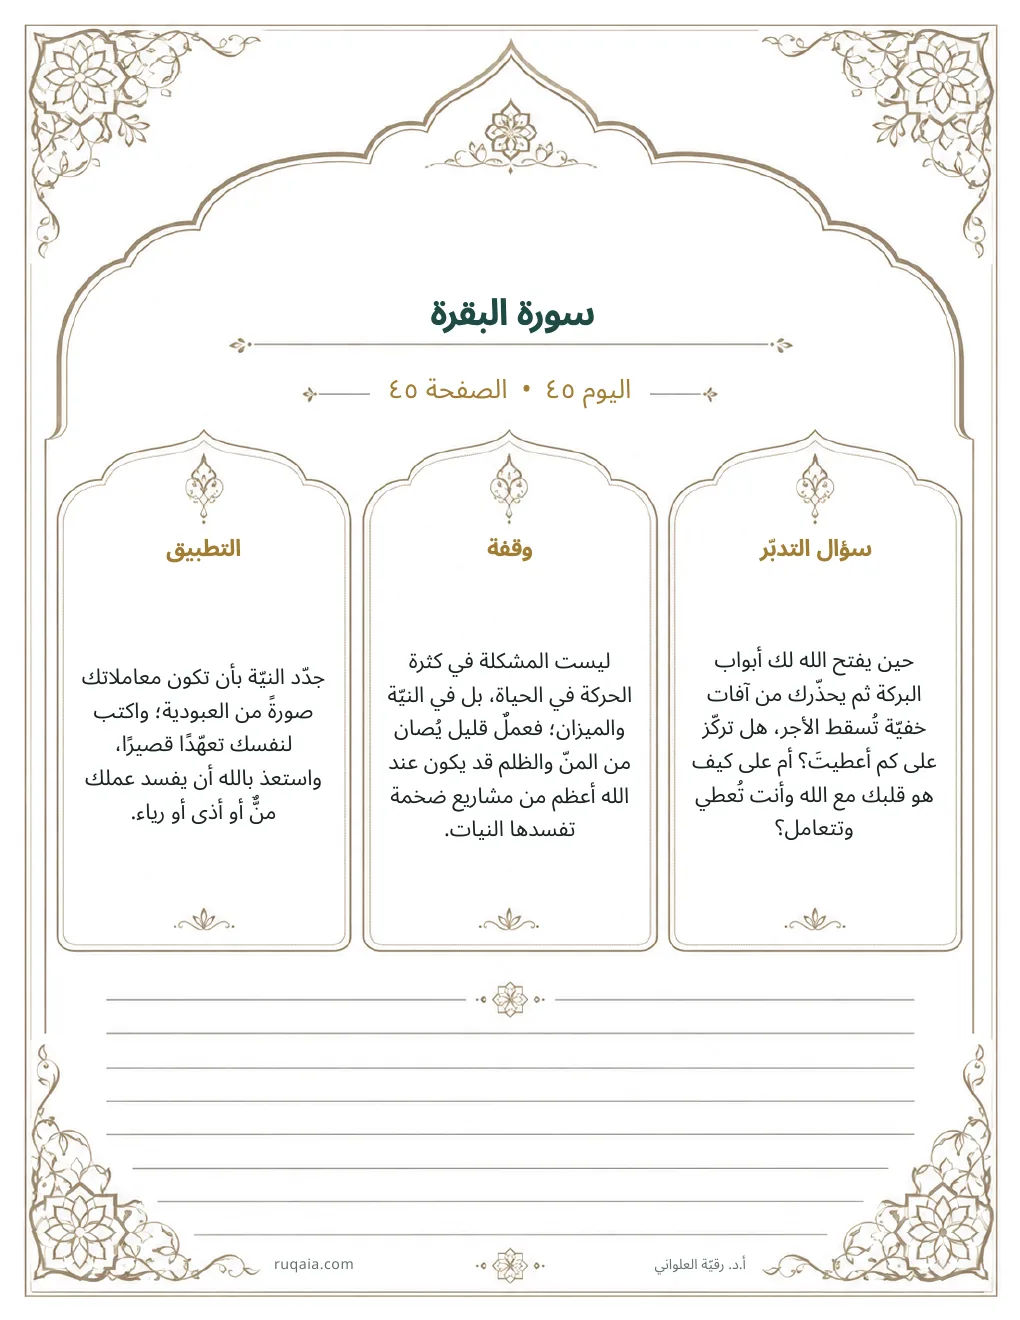 سورة البقرة
اليوم ٤٥ • الصفحة ٤٥
سؤال التدبّر
حين يفتح الله لك أبواب
البركة ثم يحذّرك من آفات
خفيّة تُسقط الأجر، هل تركّز
على كم أعطيتَ؟ أم على كيف
هو قلبك مع الله وأنت تُعطي
وتتعامل؟
وقفة
ليست المشكلة في كثرة
الحركة في الحياة، بل في النيّة
والميزان؛ فعملٌ قليل يُصان
من المنّ والظلم قد يكون عند
الله أعظم من مشاريع ضخمة
تفسدها النيات.
التطبيق
جدّد النيّة بأن تكون معاملاتك
صورةً من العبودية؛ واكتب
لنفسك تعهّدًا قصيرًا،
واستعذ بالله أن يفسد عملك
منٌّ أو أذى أو رياء.
أ.د. رقيّة العلواني
ruqaia.com